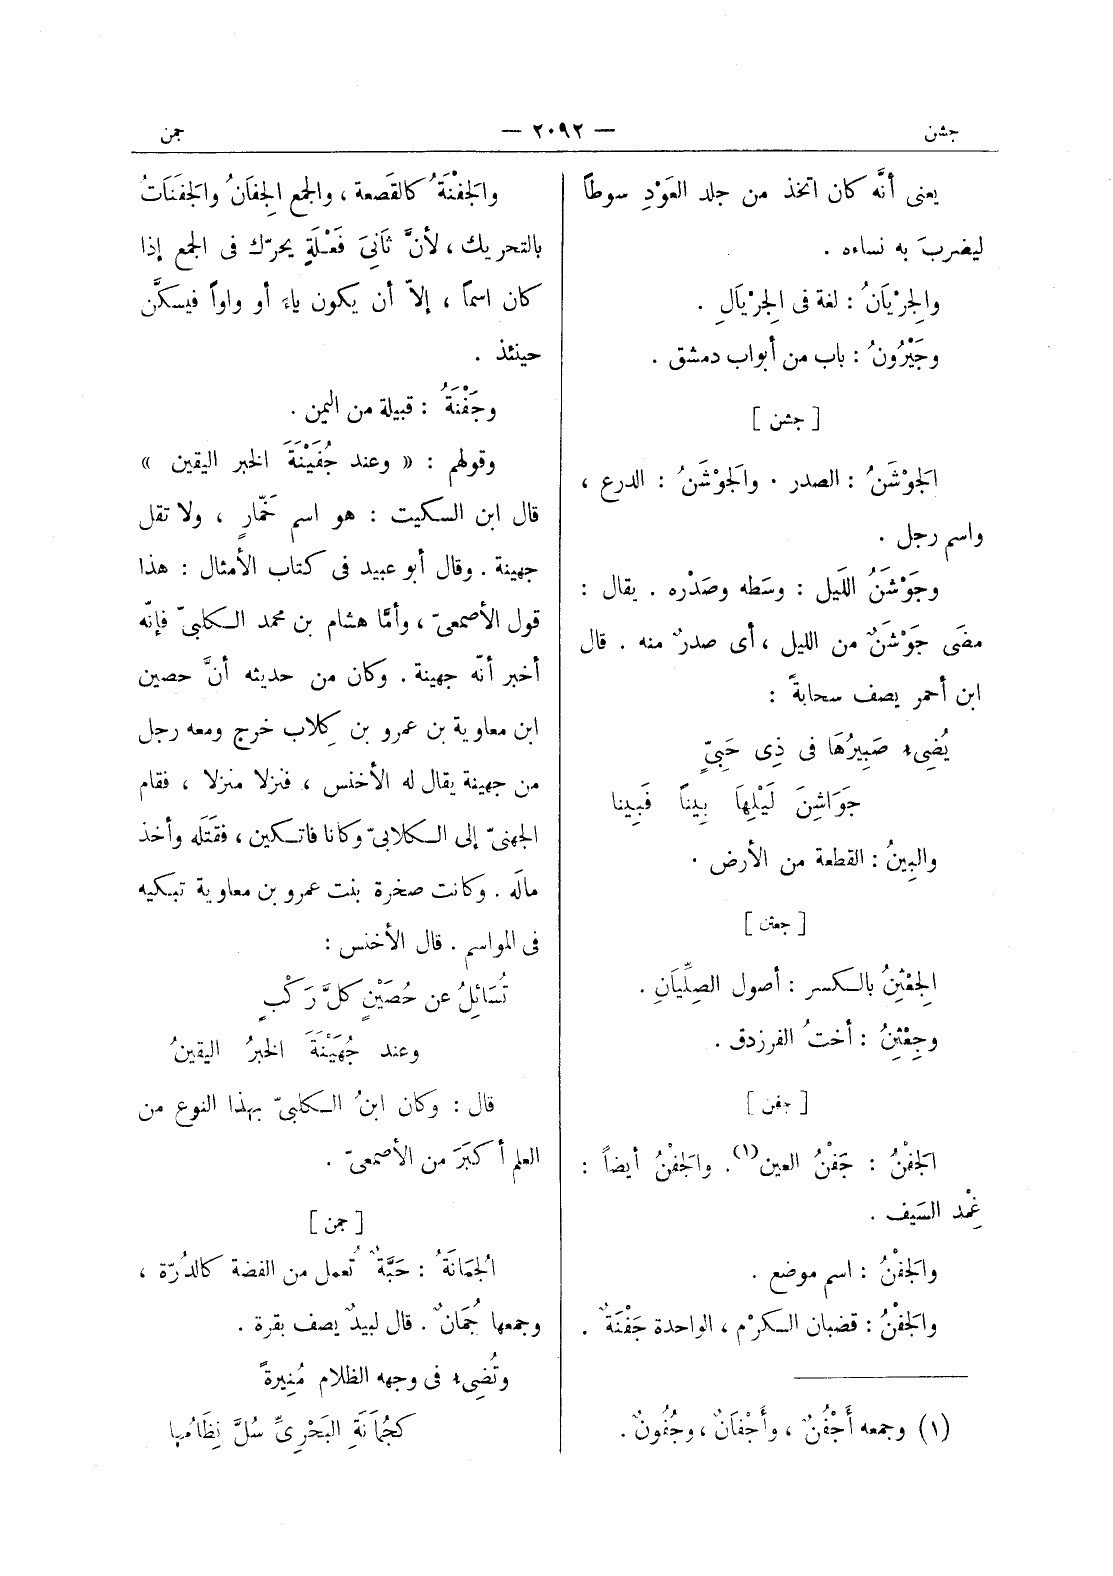 جشن — ٢٠٩٢ — جمن
يعنى أنَّه كان اتخذ من جلد العَوْدِ سوطاً
ليضربَ به نساءه .
والجِرْيَانُ : لغة فى الجِرْيَالِ .
وجَيْرُونُ : باب من أبواب دمشق .
[ جشن ]
الجَوْشَنُ : الصدر . والجَوْشَنُ : الدرع ،
واسم رجل .
وجَوْشَنُ اللَيل : وسَطه وصَدْره . يقال :
مضَى جَوْشَنٌ من الليل ، أى صدرٌ منه . قال
ابن أحمر يصف سحابةً :
يُضِىءُ صَبِيرُهَا فى ذِى حَبِىٍّ
جَوَاشِنَ لَيْلِهَا بِيناً فَبِينا
والبِينُ : القطعة من الأرض .
[ جعثن ]
الجِعْثِنُ بالكسر : أصول الصِلِّيَانِ .
وجِعْثِنُ : أختُ الفرزدق .
[ جفن ]
الجَفْنُ : جَفْنُ العين(١). والجَفْنُ أيضاً :
غِمْد السَيف .
والجَفْنُ : اسم موضع .
والجَفْنُ : قضبان الكرْم ، الواحدة جَفْنَةٌ .
(١) وجمعه أَجْفُنٌ ، وأَجْفَانٌ ، وجُفُونٌ .
والجَفْنَةُ كالقَصعة ، والجمع الجِفَانُ والجَفَنَاتُ
بالتحريك ، لأنَّ ثَانِىَ فَعْلَةٍ يحرّك فى الجمع إذا
كان اسماً ، إلاّ أن يكون ياءً أو واواً فيسكَّن
حينئذ .
وجَفْنَةُ : قبيلة من اليمن .
وقولهم : « وعند جُفَيْنَةَ الخبر اليقين »
قال ابن السكيت : هو اسم خَمّارٍ ، ولا تقل
جهينة . وقال أبو عبيد فى كتاب الأمثال : هذا
قول الأصمعىّ ، وأمَّا هشام بن محمد الكلبىّ فإنّه
أخبر أنّه جهينة . وكان من حديثه أنَّ حصين
ابن معاوية بن عمرو بن كِلاب خرج ومعه رجل
من جهينة يقال له الأخنس ، فنزلا منزلا ، فقام
الجهنىّ إلى الكلابىّ وكانا فاتكين ، فقَتَله وأخذ
مالَه . وكانت صخرة بنت عمرو بن معاوية تبكيه
فى المواسم . قال الأخنس :
تُسَائِلُ عن حُصَيْنٍ كلَّ رَكْبٍ
وعند جُهَيْنَةَ الخبرُ اليقينُ
قال : وكان ابنُ الكلبىّ بهذا النوع من
العلم أكبَرَ من الأصمعىّ .
[ جمن ]
الجُمَانَةُ : حَبَّةٌ تُعمل من الفضة كالدُرّة ،
وجمعها جُمَانٌ . قال لبيدٌ يصف بقرة .
وتُضِىءُ فى وجهِ الظلام مُنِيرةً
كجُمَانَةِ البَحْرِىِّ سُلَّ نِظَامُها